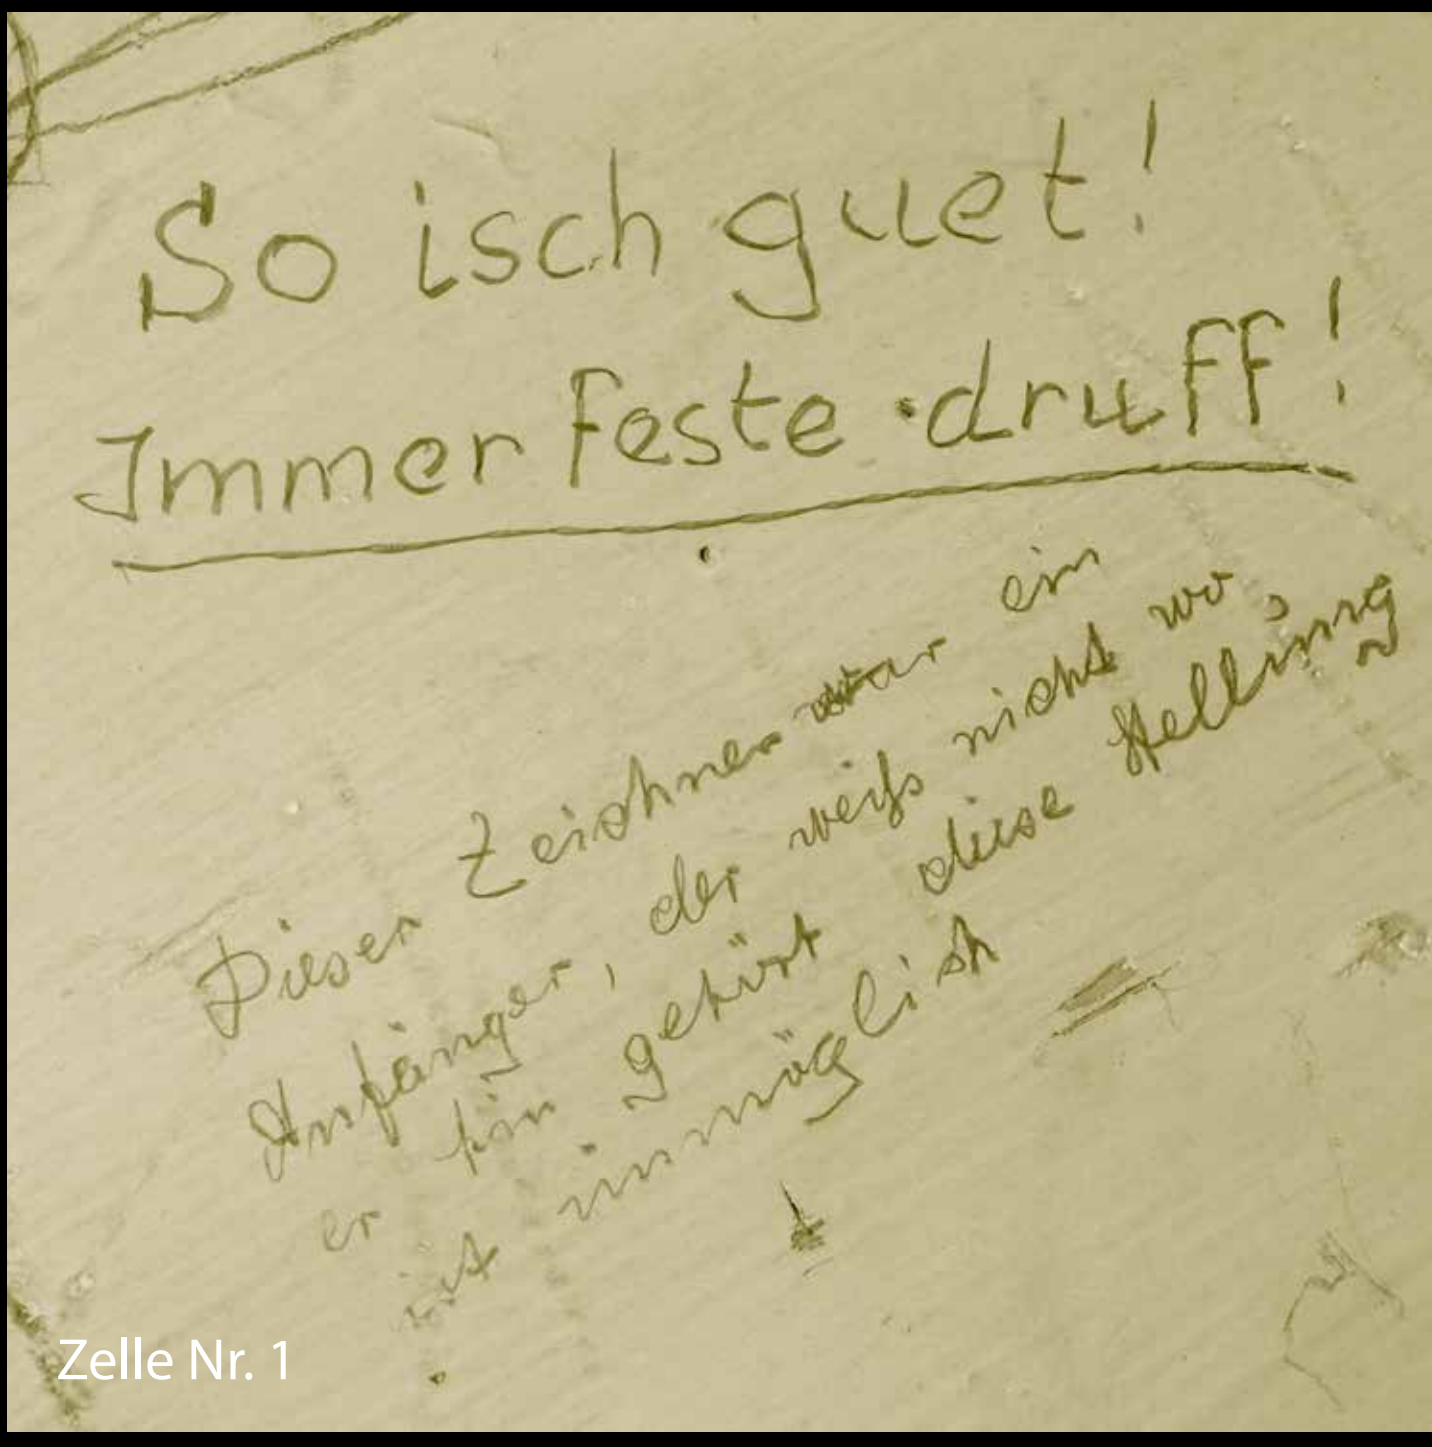 So isch guet!
Immer feste druff!
Dieser Zeichner war ein
Anfänger, der weiß nicht wo,
er hin gehört diese Stellung
ist unmöglich
Zelle Nr. 1